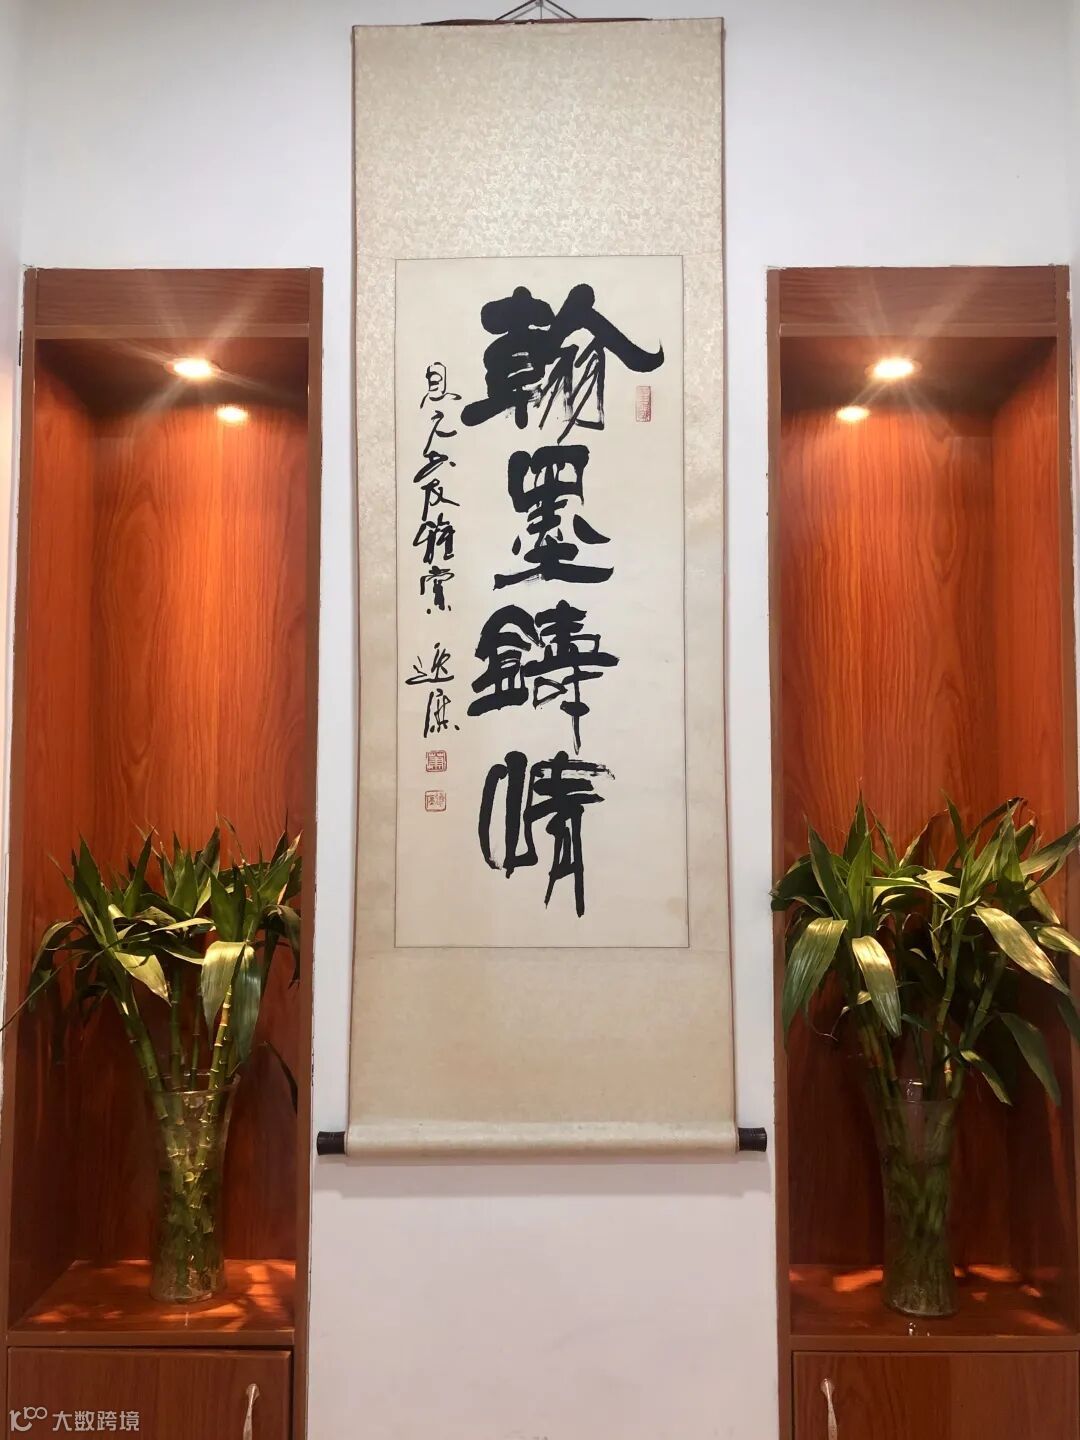 翰墨鑄情
思元書友雅賞 逸康
大数跨境